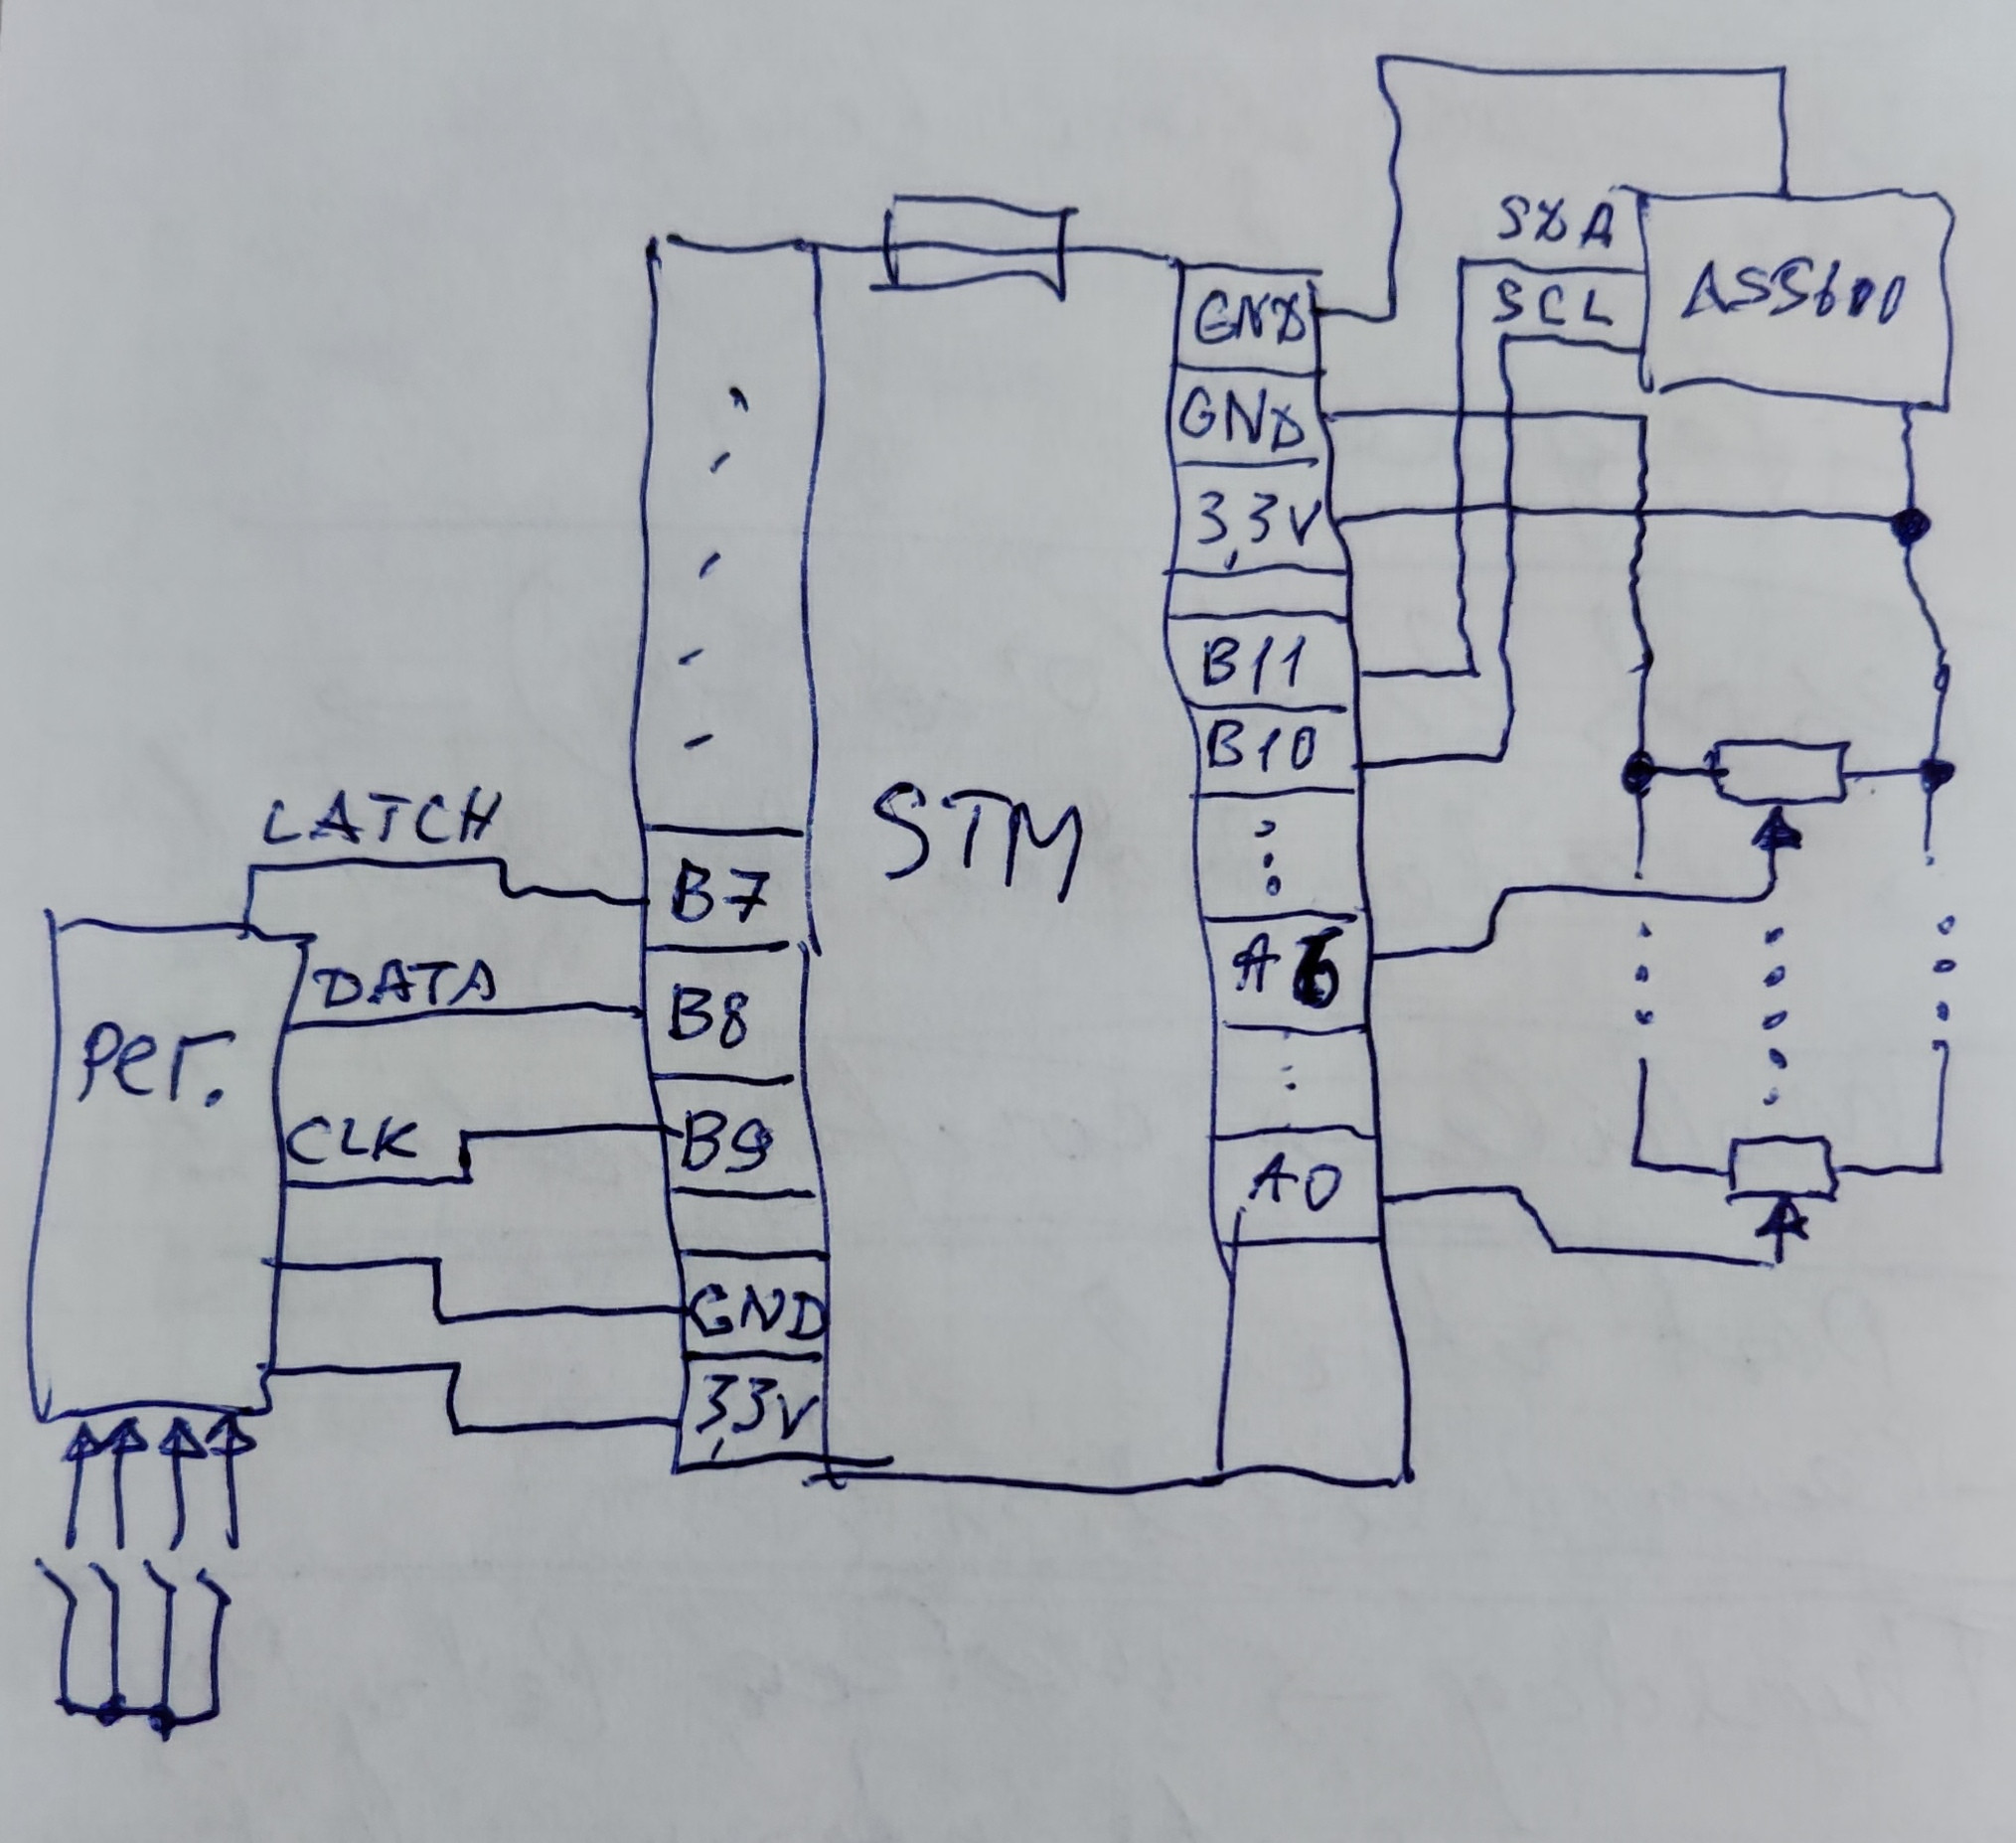 SDA
GND
SCL
AS5600
GND
3,3V
B11
B10
STM
LATCH
B7
A6
DATA
B8
Рег.
CLK
B9
A0
GND
3,3V